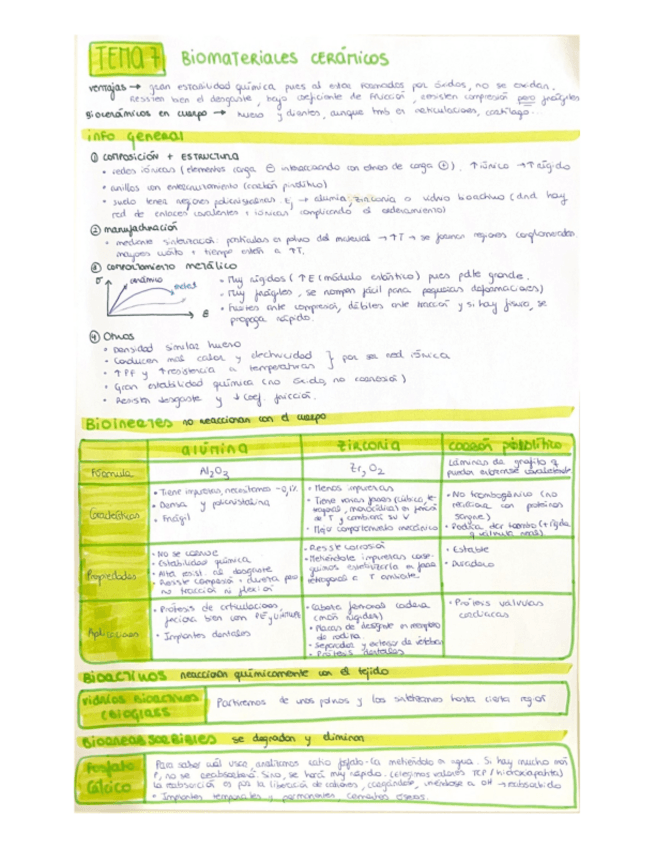 TEMA 7 BIOMATERIALES CERÁMICOS
ventajas → gran estabilidad química pues al estar formados por óxidos, no se oxidan.
Resisten bien el desgaste, bajo coeficiente de fricción, resisten compresión pero frágiles
Biocerámicos en cuerpo → hueso y dientes, aunque tmb en articulaciones, cartílago...
info general
① COMPOSICIÓN + ESTRUCTURA
• redes iónicas (elementos carga ⊖ interaccionando con otros de carga ⊕). ↑ iónico → ↑ rígido
• anillos con entrecruzamiento (carbón pirolítico)
• suele tener regiones policristalinas. Ej → alúmina, zirconia o vidrio bioactivo (dnd hay
red de enlaces covalentes + iónicos complicando el ordenamiento)
② manufacturación
• mediante sinterización: partículas en polvo del material → ↑T → se forman regiones conglomeradas
mayores cuanto + tiempo estén a ↑T.
③ comportamiento metálico
σ cerámico metal ε
• Muy rígidos (↑E (módulo elástico) pues pdte grande.
• Muy frágiles, se rompen fácil para pequeñas deformaciones)
• Fuertes ante compresión, débiles ante tracción y si hay fisura, se
propaga rápido.
④ Otros
• Densidad similar hueso
• Conducen mal calor y electricidad
• ↑PF y ↑resistencia a temperaturas } por ser red iónica
• Gran estabilidad química (no óxida, no corrosión)
• Resisten desgaste y ↓ coef. fricción.
Bioinertes no reaccionan con el cuerpo
alúmina zirconia carbón pirolítico
Fórmula Al₂O₃ Zr, O₂ láminas de grafito q
pueden entrarse covalentemente
Características
• Tiene impurezas, necesitamos ~0,1%
• Densa y policristalina
• Frágil
• Menos impurezas
• Tiene varias fases (cúbico, te-
tragonal, monoclínica) en función
de T y cambiará su V
• Mejor comportamiento mecánico
• No trombogénico (no
reacciona con proteínas
sangre)
• Podría dar trombo (+ rígido
q válvula real).
Propiedades
• No se corroe
• Estabilidad química
• Alta resist. al desgaste
• Resiste compresión + dureza pero
no tracción ni flexión
• Resiste corrosión
• Metiéndole impurezas conse-
guimos estabilizarla en fase
tetragonal a T ambiente.
• Estable
• Duradero
Aplicaciones
• Prótesis de articulaciones
• Implantes dentales
• Cabeza femoral cadera
(más rígidos)
• Placas de desgaste en reemplazo
de rodilla
• Prótesis dentales
• Prótesis válvulas
cardiacas
Bioactivos reaccionan químicamente con el tejido
vidrios bioactivos
(Bioglass)
Partiremos de unos polvos y los sinterizamos hasta cierta región
Bioreabsorbibles se degradan y eliminan
Fosfato
Cálcico
Para saber cuál usar, analizamos ratio fosfato-Ca metiéndolo en agua. Si hay mucho más
P, no se reabsorberá. Sino, se hará muy rápido. (elegimos valores TCP / hidroxiapatita)
La reabsorción es por la liberación de cationes, cargándose, uniéndose a OH → reabsorbido
• Implantes temporales y permanentes, cementos óseos.